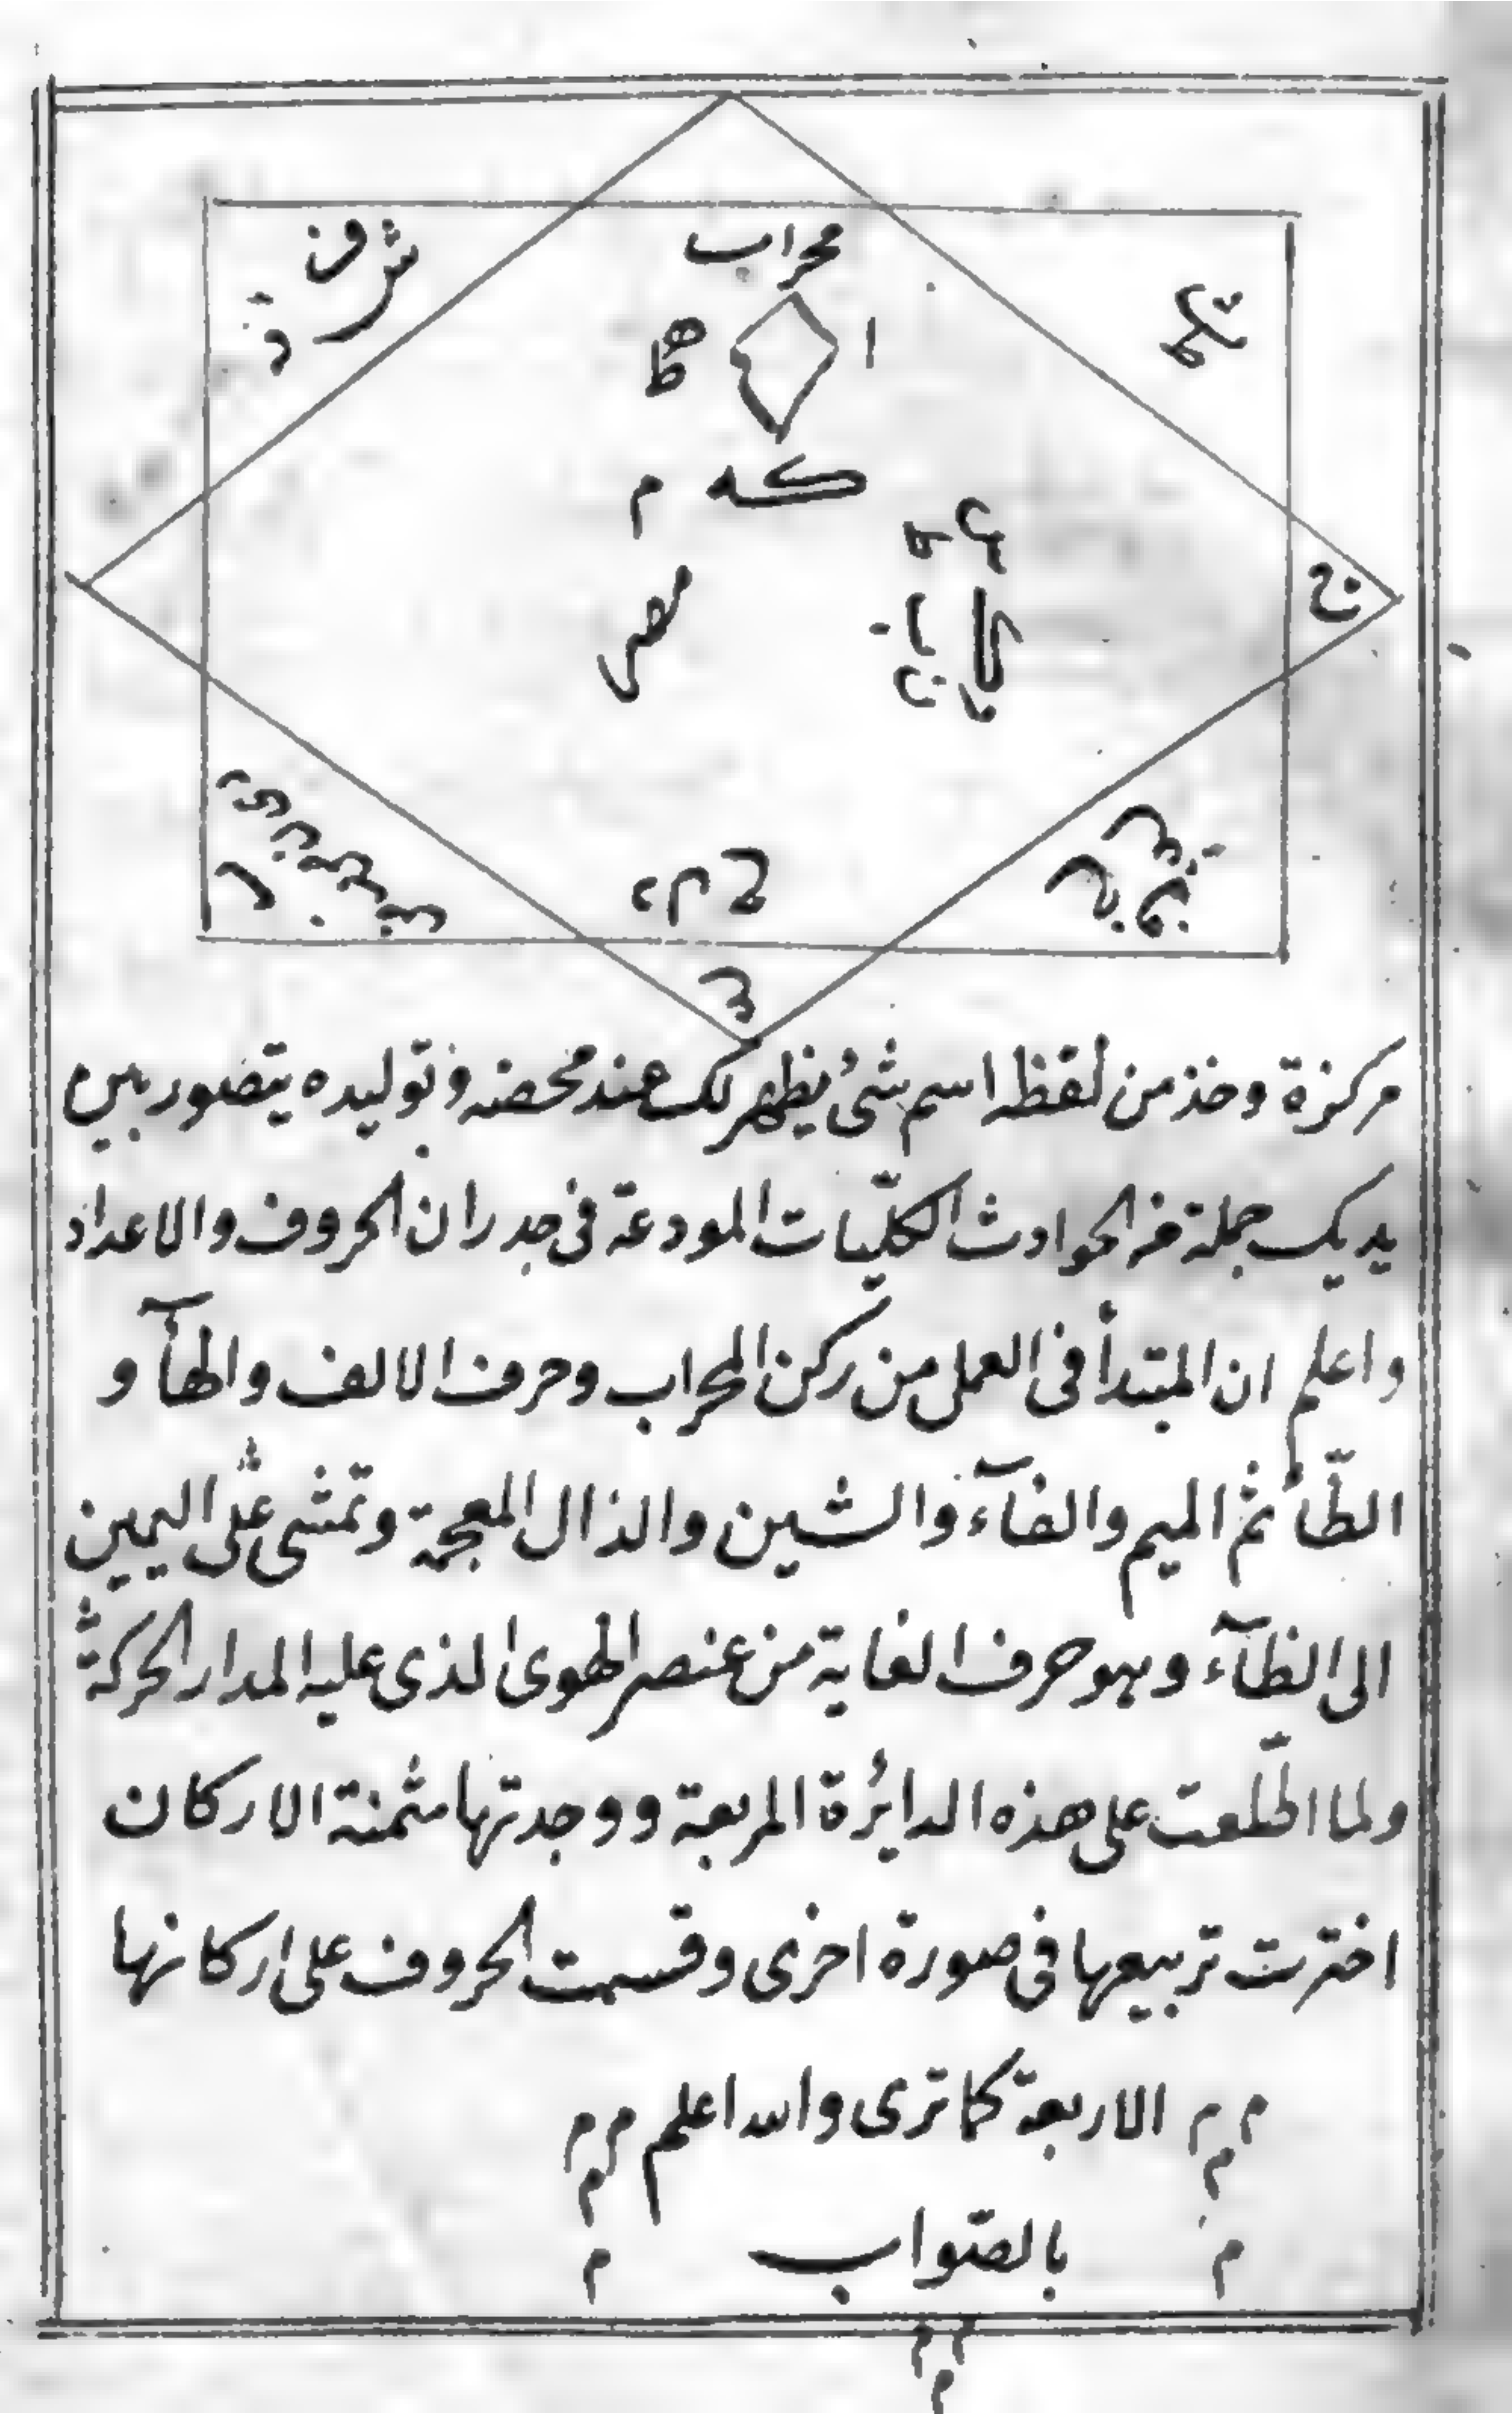 محراب
شرف
ذ
ا
ها
ط
كه م
مص
ح
مركزة وخذ من لفظه اسم شئ يظهر لك عند محضه وتوليده يتصور بين
يديك جملة من الحوادث الكليّات المودعة فى جدران الحروف والاعداد
واعلم ان المبتدأ فى العمل من ركن المحراب وحرف الالف والهآ و
الطّآ ثم الميم والفآء والشين والذال المعجمة وتمشى على اليمين
الى الظآء وهو حرف الغاية من عنصر الهوى الذى عليه المدار الحركة
ولما اطّلعت على هذه الدائرة المربعة ووجدتها مثمنة الاركان
اخترت تربيعها فى صورة اخرى وقسمت الحروف على اركانها
م م م الاربعة كما ترى والله اعلم م م م
م بالصّواب م
م م م